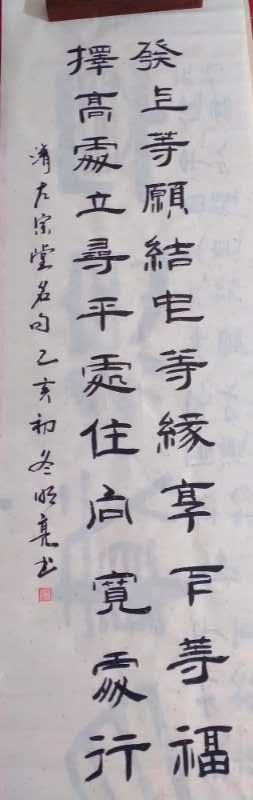 發上等願結中等緣享下等福
擇高處立尋平處住向寬處行
清左宗堂名句乙亥初冬明亮书